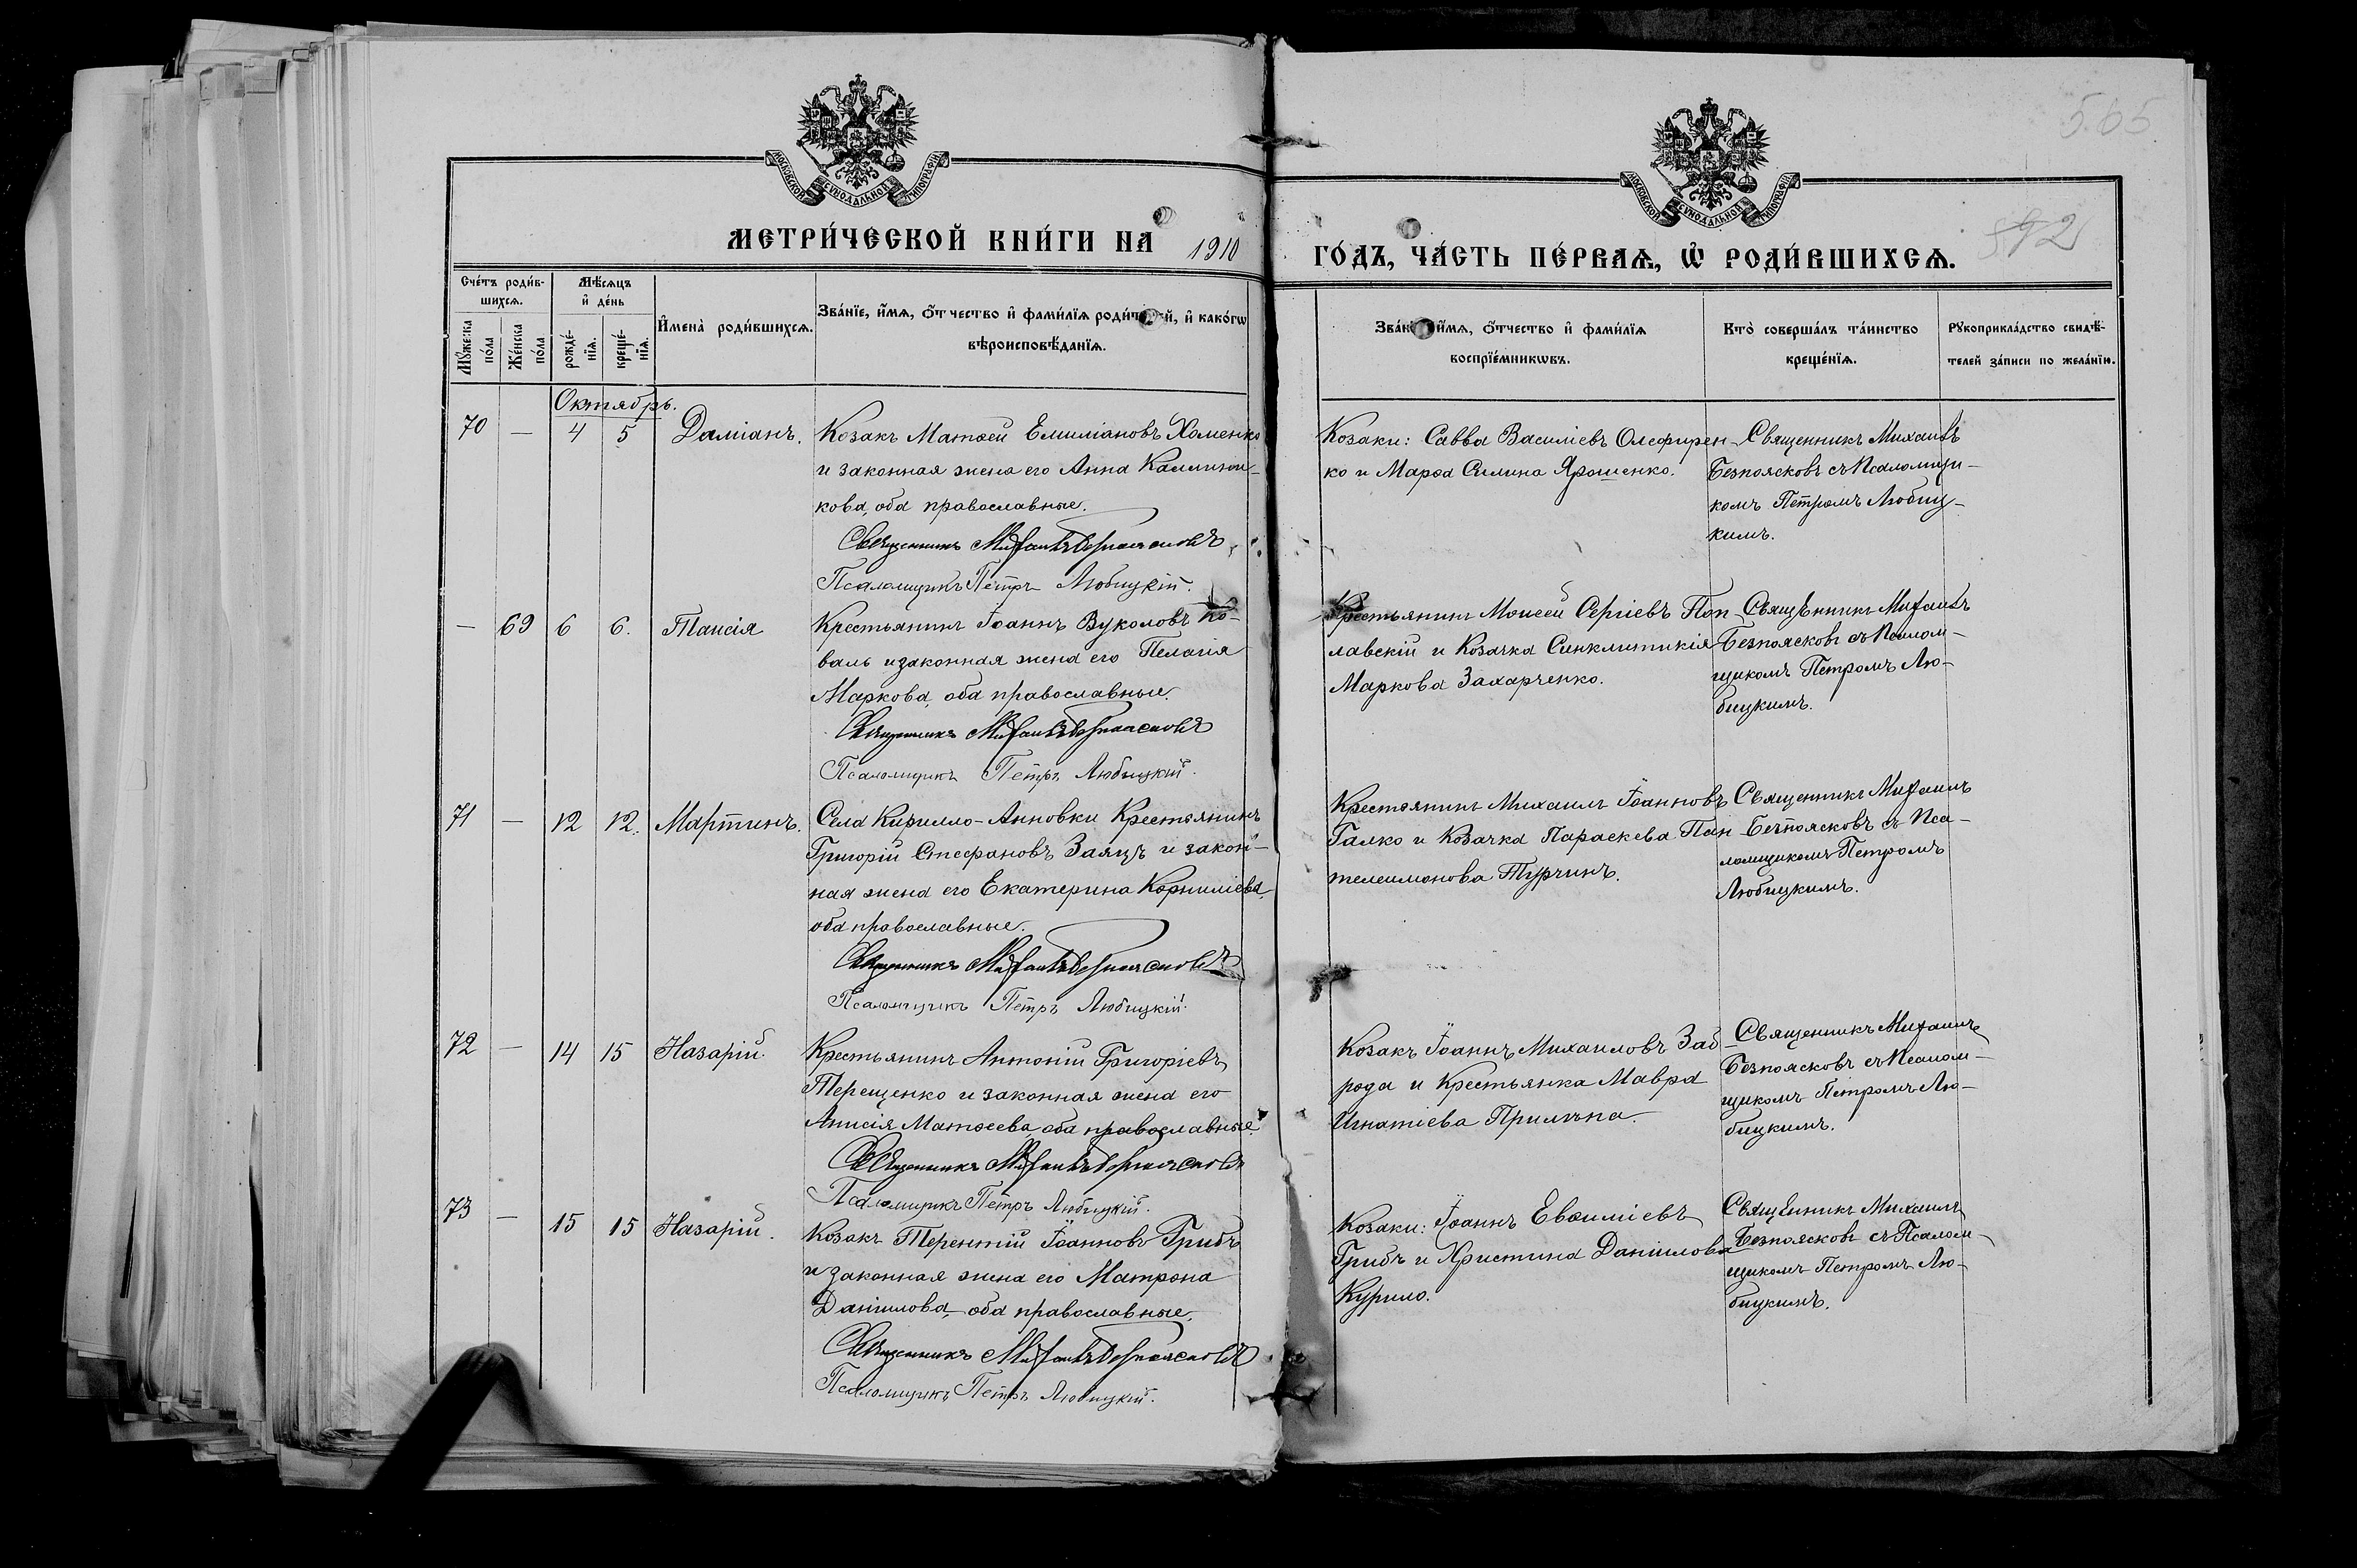 565
МОСКОВСКОЙ СУНОДАЛЬНОЙ ТИПОГРАФІИ
МОСКОВСКОЙ СУНОДАЛЬНОЙ ТИПОГРАФІИ
МЕТРИ́ЧЕСКОЙ КНИ́ГИ НА 1910
ГО́ДЪ, ЧА́СТЬ ПЕ́РВАѦ, Ѡ҆ РОДИ́ВШИХСѦ.
Сче́тъ роди́в-
шихсѧ.
Мѣ́сѧцъ
и҆ де́нь
Мꙋ́жеска
по́ла
Же́нска
по́ла.
рожде́-
нїѧ.
креще́-
нїѧ.
И҆мена̀ роди́вшихсѧ.
Зва́нїе, и҆́мѧ, ѻ҆́тчество и҆ фами́лїѧ роди́телей, и҆ како́гѡ
вѣроисповѣ́данїѧ.
Зва́нїе, и҆́мѧ, ѻ҆́тчество и҆ фами́лїѧ
воспрїе́мникѡвъ.
Кто̀ соверша́лъ та́инство
креще́нїѧ.
Рꙋкоприкла́дство свидѣ́-
телей за́писи по жела́нїю.
Октябрь.
70 — 4 5 Даміанъ.
Козакъ Матѳей Емиліановъ Хоменко
и законная жена его Анна Каллини-
кова, оба православные.
Священникъ Михаилъ Безпоясковъ
Псаломщикъ Петръ Любицкій.
Козаки: Савва Василіевъ Олефирен-
ко и Марѳа Силина Ярошенко.
Священникъ Михаилъ
Безпоясковъ съ Псаломщи-
комъ Петромъ Любиц-
кимъ.
— 69 6 6. Таисія
Крестьянинъ Іоаннъ Вуколовъ Ко-
валь и законная жена его Пелагія
Маркова, оба православные.
Священникъ Михаилъ Безпоясковъ
Псаломщикъ Петръ Любицкій.
Крестьянинъ Моисей Сергіевъ Поп-
лавскій и Козачка Синклитикія
Маркова Захарченко.
Священникъ Михаилъ
Безпоясковъ съ Псалом-
щикомъ Петромъ Лю-
бицкимъ.
71 — 12 12. Мартинъ.
Села Кирилло-Анновки Крестьянинъ
Григорій Стефановъ Заяцъ и закон-
ная жена его Екатерина Корниліева,
оба православные.
Священникъ Михаилъ Безпоясковъ
Псаломщикъ Петръ Любицкій.
Крестьянинъ Михаилъ Іоанновъ
Галко и Козачка Параскева Пан-
телеимонова Турчинъ.
Священникъ Михаилъ
Безпоясковъ съ Пса-
ломщикомъ Петромъ
Любицкимъ.
72 — 14 15 Назарій.
Крестьянинъ Антоній Григоріевъ
Терещенко и законная жена его
Анисія Матѳеева оба православные.
Священникъ Михаилъ Безпоясковъ
Псаломщикъ Петръ Любицкій.
Козакъ Іоаннъ Михаиловъ Заб-
рода и Крестьянка Мавра
Игнатіева Прилипа.
Священникъ Михаилъ
Безпоясковъ съ Псалом-
щикомъ Петромъ Лю-
бицкимъ.
73 — 15 15 Назарій.
Козакъ Терентій Іоанновъ Грибъ
и законная жена его Матрона
Даніилова, оба православные.
Священникъ Михаилъ Безпоясковъ
Псаломщикъ Петръ Любицкій.
Козаки: Іоаннъ Евѳиміевъ
Грибъ и Христина Даніилова
Курило.
Священникъ Михаилъ
Безпоясковъ съ Псалом-
щикомъ Петромъ Лю-
бицкимъ.